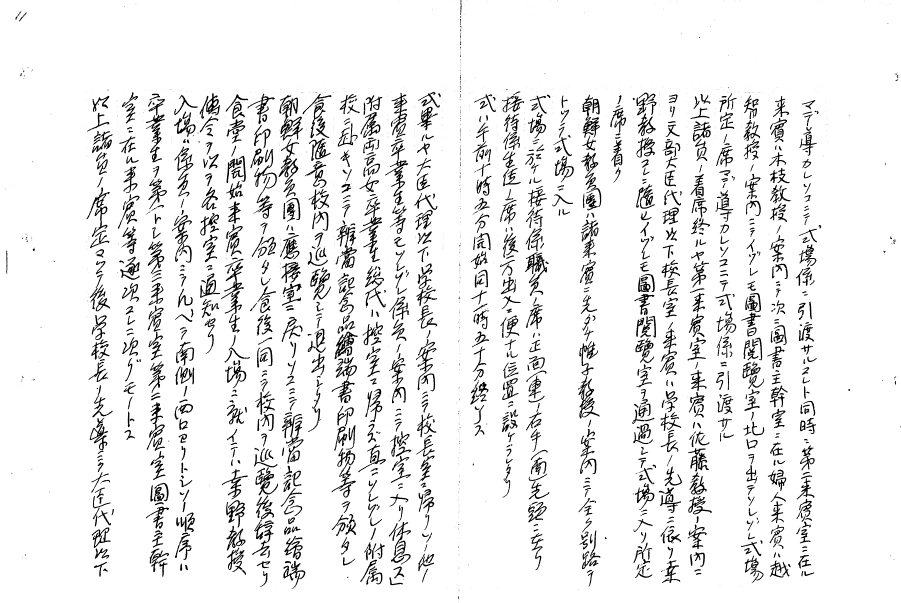 マデ導カレソコニテ式場係ニ引渡サルコレト同時ニ第二来賓室ニ在ル
来賓ハ木枝教授ノ案内ニテ次ニ図書主幹室ニ在ル婦人来賓ハ越
智教授ノ案内ニテイヅレモ図書閲覧室ノ北口ヲ出テソレゾレ式場
所定ノ席マデ導カレソコニテ式場係ニ引渡サル
以上諸員ノ着席終ルヤ第一来賓室ノ来賓ハ佐藤教授ノ案内ニ
ヨリ文部大臣代理以下校長室ノ来賓ハ学校長ノ先導ニ依リ桒
野教授コレニ随ヒイヅレモ図書閲覧室ヲ通過シテ式場ニ入リ所定
ノ席ニ着ク
朝鮮女教員団ハ諸来賓ニ先ガケ帷子教授ノ案内ニテ全ク別路ヲ
トツテ式場ニ入ル
式場ニ於ケル接待係職員ノ席ハ正面東ノ右手一面先頭ニ在リ
接待係生徒ノ席ハ後方出入ニ便ナル位置ニ設ケラレタリ
式ハ午前十時五分開始同十一時五十分終了ス
式畢ルヤ大臣代理以下学校長ノ案内ニテ校長室ニ帰リソノ他ノ
来賓卒業生等モソレゾレ係員ノ案内ニテ控室ニ入リ休息ス
附属両高女ノ卒業生総代ハ控室ニ帰ラズ直ニソレゾレノ附属
校ニ赴キソコニテ辨當記念品繪端書印刷物等ヲ領タレ
食後随意校内ヲ巡覧シテ退出シタリ
朝鮮女教員団ハ應接室ニ戻リソコニテ辨當記念品繪端
書印刷物等ヲ領タレ食後一同ニテ校内ヲ巡覧後辞去セリ
食堂ノ開始来賓卒業生ノ入場ニ就イテハ桒野教授
傳令ヲ以テ各控室ニ通知セリ
入場ハ係員ノ案内ニテスベテ南側ノ西口ヨリトシソノ順序ハ
卒業生ヲ第一トシ第三来賓室第二来賓室図書主幹
室ニ在ル来賓等逐次コレニ次グモノトス
以上諸員ノ席定マツテ後学校長ノ先導ニテ大臣代理以下
11